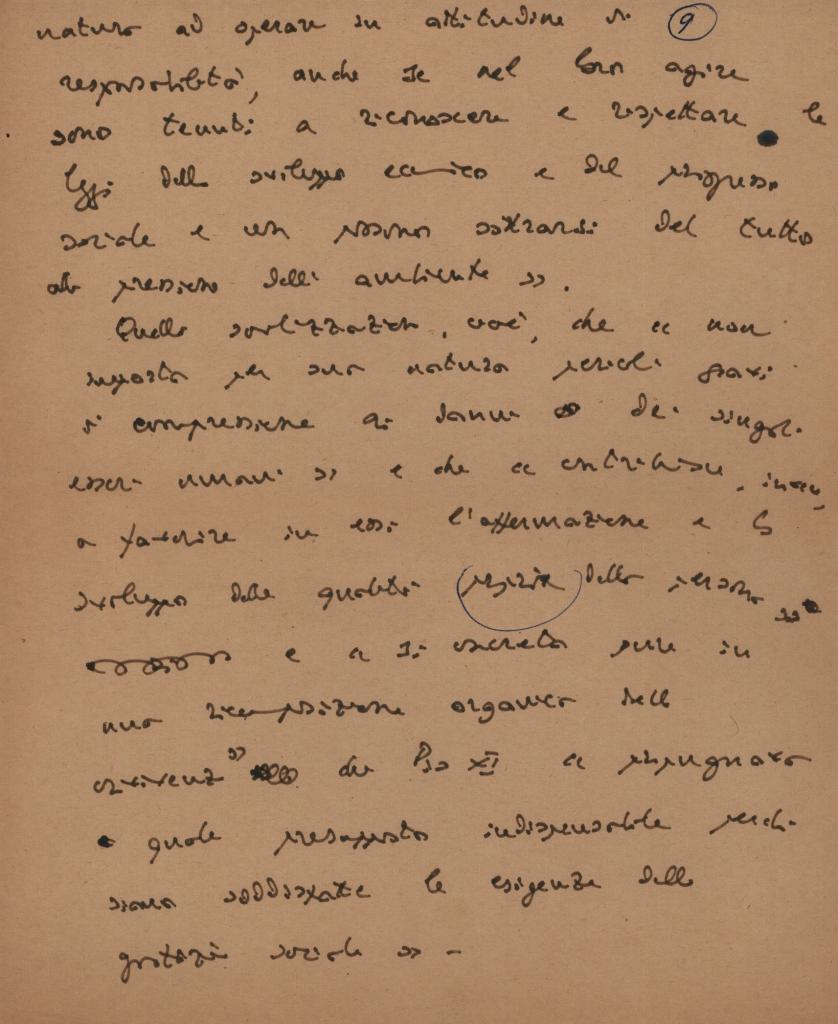 natura ad operare in attitudine di 9
responsabilità, anche se nel loro agire
sono tenuti a riconoscere e rispettare le
leggi dello sviluppo economico e del progresso
sociale e non possono sottrarsi del tutto
alla pressione dell'ambiente ».
Quella socializzazione, cioè, che « non
importa per sua natura pericoli gravi
di compressione ai danni dei singoli
esseri umani » e che « contribuisce, invece,
a favorire in essi l'affermazione e lo
sviluppo delle qualità proprie della persona »
e « si concreta pure in
una ricomposizione organica della
convivenza » che Pio XI « propugnava
quale presupposto indispensabile perché
siano soddisfatte le esigenze della
giustizia sociale » -